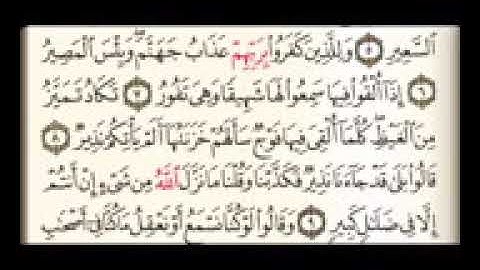 ٱلسَّعِيرِ ٥ وَلِلَّذِينَ كَفَرُواْ بِرَبِّهِمْ عَذَابُ جَهَنَّمَۖ وَبِئْسَ ٱلْمَصِيرُ
٦ إِذَآ أُلْقُواْ فِيهَا سَمِعُواْ لَهَا شَهِيقًا وَهِىَ تَفُورُ ٧ تَكَادُ تَمَيَّزُ
مِنَ ٱلْغَيْظِۖ كُلَّمَآ أُلْقِىَ فِيهَا فَوْجٌ سَأَلَهُمْ خَزَنَتُهَآ أَلَمْ يَأْتِكُمْ نَذِيرٌ ٨
قَالُواْ بَلَىٰ قَدْ جَآءَنَا نَذِيرٌ فَكَذَّبْنَا وَقُلْنَا مَا نَزَّلَ ٱللَّهُ مِن شَىْءٍ إِنْ أَنتُمْ
إِلَّا فِى ضَلَٰلٍ كَبِيرٍ ٩ وَقَالُواْ لَوْ كُنَّا نَسْمَعُ أَوْ نَعْقِلُ مَا كُنَّا فِىٓ أَصْحَٰبِ